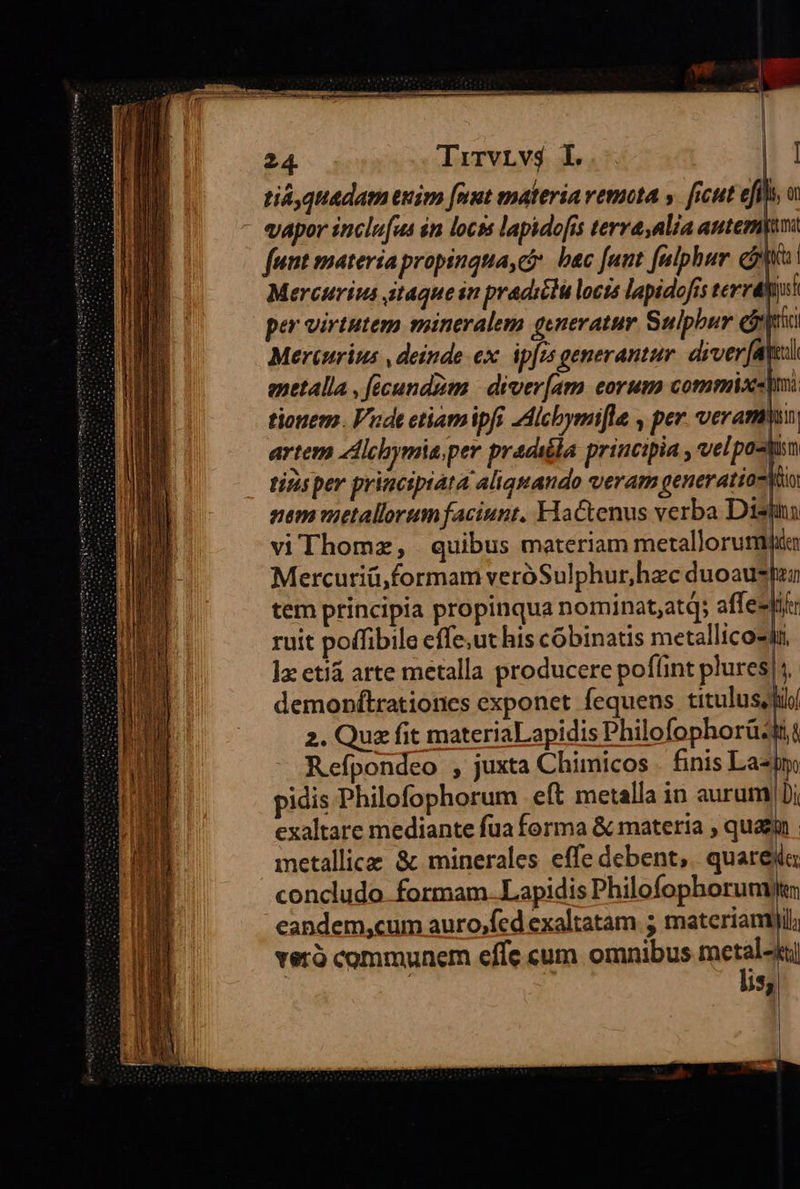 24 TITVLVS I.
tiâ,quædam enim ſunt materia remota, ſicut eſt
vapor incluſus in locis lapidoſis terræ,alia autem
ſunt materia propinqua,& hæc ſunt ſulphur &
Mercurius,itaque in prædictis locis lapidoſis terræ
per virtutem mineralem generatur Sulphur &
Mercurius, deinde ex ipſis generantur diverſa
metalla, ſecundùm diverſam eorum commix-
tionem. Vnde etiam ipſi Alchymiſtæ, per veram
artem Alchymiæ,per prædicta principia, vel po-
tiùs per principiata aliquando veram generatio-
nem metallorum faciunt. Hactenus verba Di-
vi Thomæ, quibus materiam metallorum
Mercuriũ,formam verò Sulphur,hæc duo au-
tem principia propinqua nominat,atq; aſſe-
ruit poſſibile eſſe,ut his cõbinatis metallico-
læ etiã arte metalla producere poſſint plures
demonſtrationes exponet ſequens titulus.
2. Quæ ſit materia Lapidis Philoſophorũ:
Reſpondeo, juxta Chimicos finis La-
pidis Philoſophorum eſt metalla in aurum
exaltare mediante ſua forma & materia, quæ
metallicæ & minerales eſſe debent, quare
concludo formam Lapidis Philoſophorum
eandem,cum auro,ſed exaltatam; materiam
verò communem eſſe cum omnibus metal-
lis,